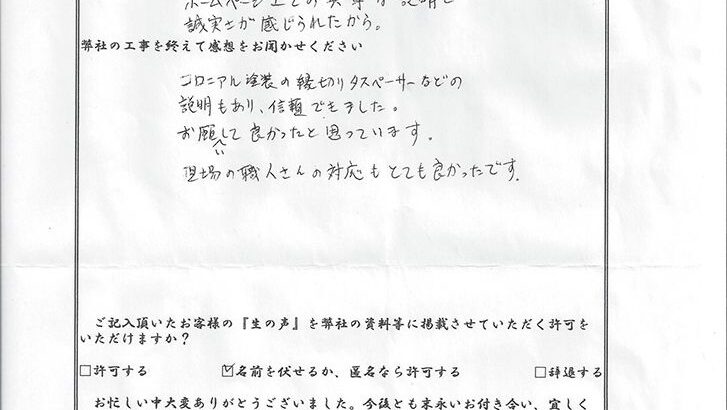 ホームページ上での
誠実さが感じられたから。
弊社の工事を終えて感想をお聞かせください
コロニアル塗装の縁切りタスペーサーなどの
説明もあり、信頼できました。
お願いして良かったと思っています。
現場の職人さんの対応もとても良かったです。
ご記入頂いたお客様の『生の声』を弊社の資料等に掲載させていただく許可を
いただけますか?
□許可する ☑名前を伏せるか、匿名なら許可する □辞退する
お忙しい中大変ありがとうございました。今後とも末永いお付き合い、宜しく